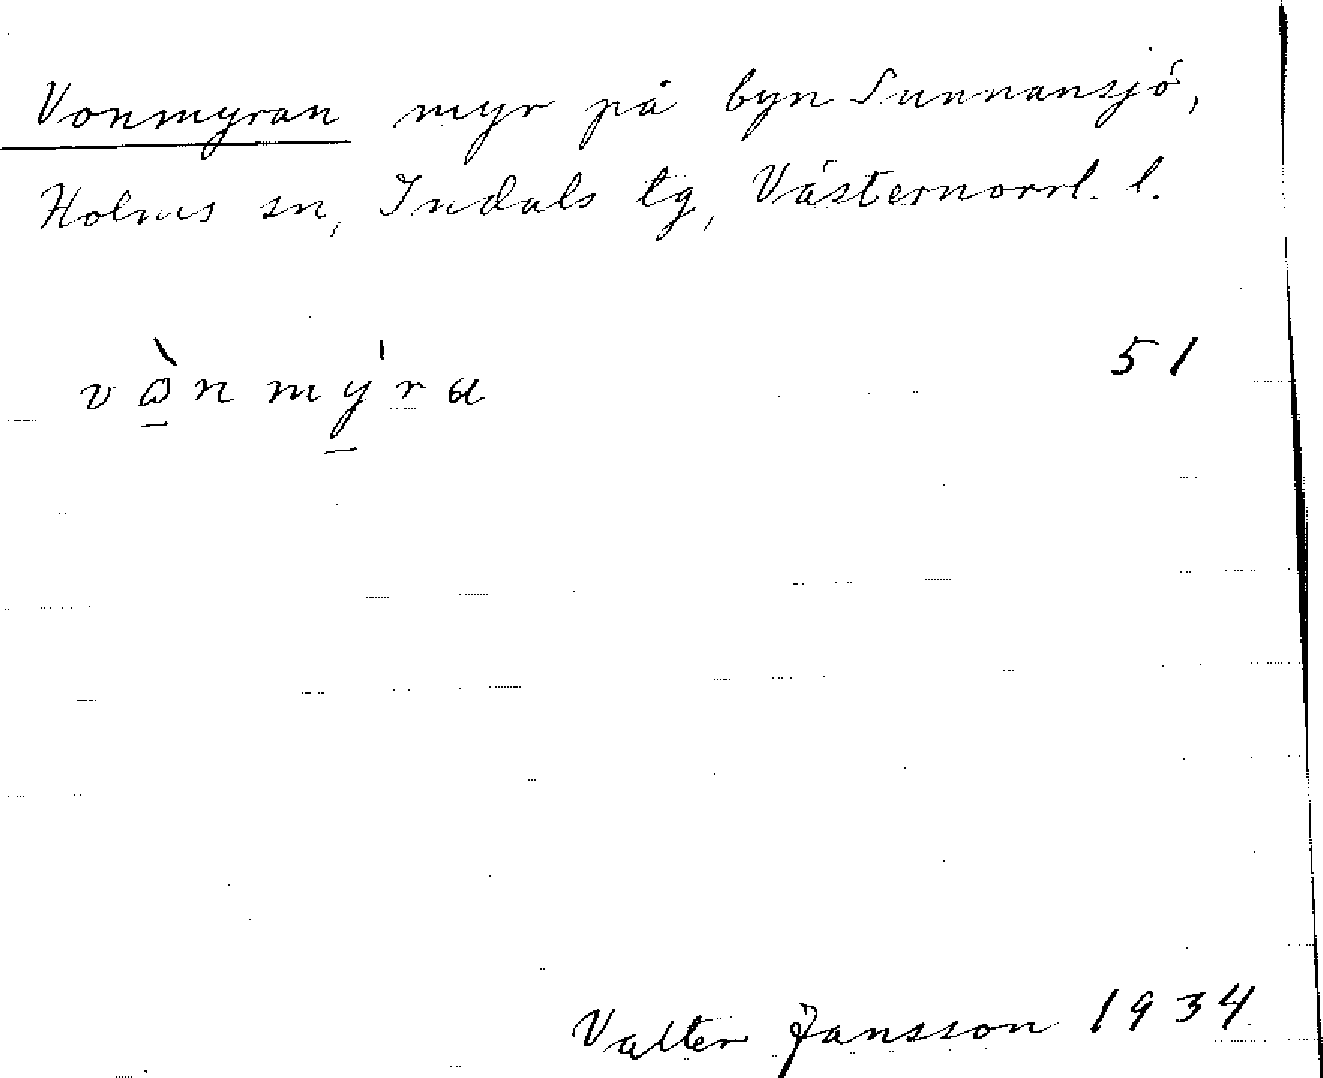 Vonmyran myr på byn Sunnansjö,
Holms sn, Indals tg, Västernorrl. l.
vò̱nmý̱ra 51
Valter Jansson 1934